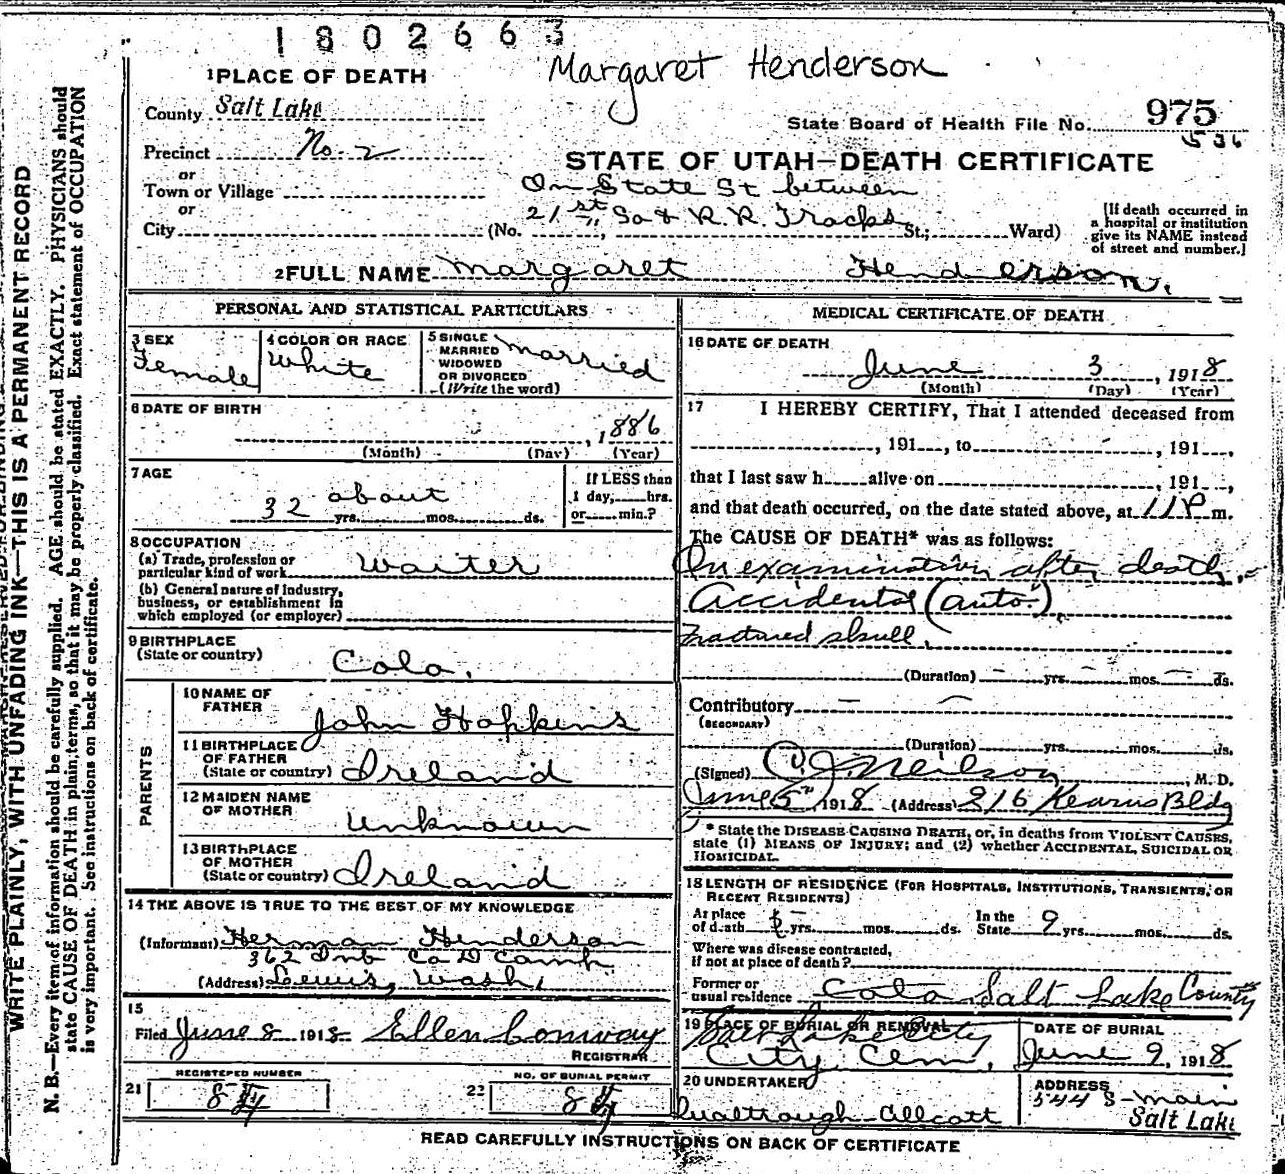 1802663
Margaret Henderson
1 PLACE OF DEATH
County Salt Lake
State Board of Health File No. 975
536
Precinct No. 2
or
STATE OF UTAH—DEATH CERTIFICATE
Town or Village
or
On State St between
City (No. 21st So & R.R. Tracks St.; Ward)
[If death occurred in
a hospital or institution
give its NAME instead
of street and number.]
2 FULL NAME Margaret Henderson.
PERSONAL AND STATISTICAL PARTICULARS
3 SEX
Female
4 COLOR OR RACE
White
5 SINGLE
MARRIED
WIDOWED
OR DIVORCED
(Write the word)
Married
6 DATE OF BIRTH
, 1886
(Month) (Day) (Year)
7 AGE
about
32 yrs. mos. ds.
If LESS than
1 day, hrs.
or min.?
8 OCCUPATION
(a) Trade, profession or
particular kind of work Waiter
(b) General nature of industry,
business, or establishment in
which employed (or employer)
9 BIRTHPLACE
(State or country) Colo.
PARENTS
10 NAME OF
FATHER John Hopkins
11 BIRTHPLACE
OF FATHER
(State or country) Ireland
12 MAIDEN NAME
OF MOTHER Unknown
13 BIRTHPLACE
OF MOTHER
(State or country) Ireland
14 THE ABOVE IS TRUE TO THE BEST OF MY KNOWLEDGE
(Informant) Herman Henderson
362 Inf Co D Camp
(Address) Lewis, Wash.
15
Filed June 8 1918 Ellen Conway
REGISTRAR
21 REGISTERED NUMBER
22 NO. OF BURIAL PERMIT
MEDICAL CERTIFICATE OF DEATH
16 DATE OF DEATH
June 3, 1918
(Month) (Day) (Year)
17 I HEREBY CERTIFY, That I attended deceased from
, 191 , to , 191 ,
that I last saw h alive on , 191 ,
and that death occurred, on the date stated above, at 11 P m.
The CAUSE OF DEATH* was as follows:
On examination after death.
Accidental (auto.)
Fractured skull.
(Duration) yrs. mos. ds.
Contributory
(SECONDARY)
(Duration) yrs. mos. ds.
(Signed) C. J. Neilson, M. D.
June 5th 1918 (Address) 916 Kearns Bldg
* State the DISEASE CAUSING DEATH, or, in deaths from VIOLENT CAUSES,
state (1) MEANS OF INJURY; and (2) whether ACCIDENTAL, SUICIDAL OR
HOMICIDAL.
18 LENGTH OF RESIDENCE (FOR HOSPITALS, INSTITUTIONS, TRANSIENTS, OR
RECENT RESIDENTS)
At place
of death yrs. mos. ds.
In the
State 9 yrs. mos. ds.
Where was disease contracted,
if not at place of death?
Former or
usual residence Colo Salt Lake County
19 PLACE OF BURIAL OR REMOVAL
Salt Lake City
City Cem.
DATE OF BURIAL
June 9, 1918
20 UNDERTAKER
Qualtrough Allcott
ADDRESS
544 S-Main
Salt Lake
READ CAREFULLY INSTRUCTIONS ON BACK OF CERTIFICATE
WRITE PLAINLY, WITH UNFADING INK—THIS IS A PERMANENT RECORD
N. B.—Every item of information should be carefully supplied. AGE should be stated EXACTLY. PHYSICIANS should
state CAUSE OF DEATH in plain terms, so that it may be properly classified. Exact statement of OCCUPATION
is very important. See instructions on back of certificate.